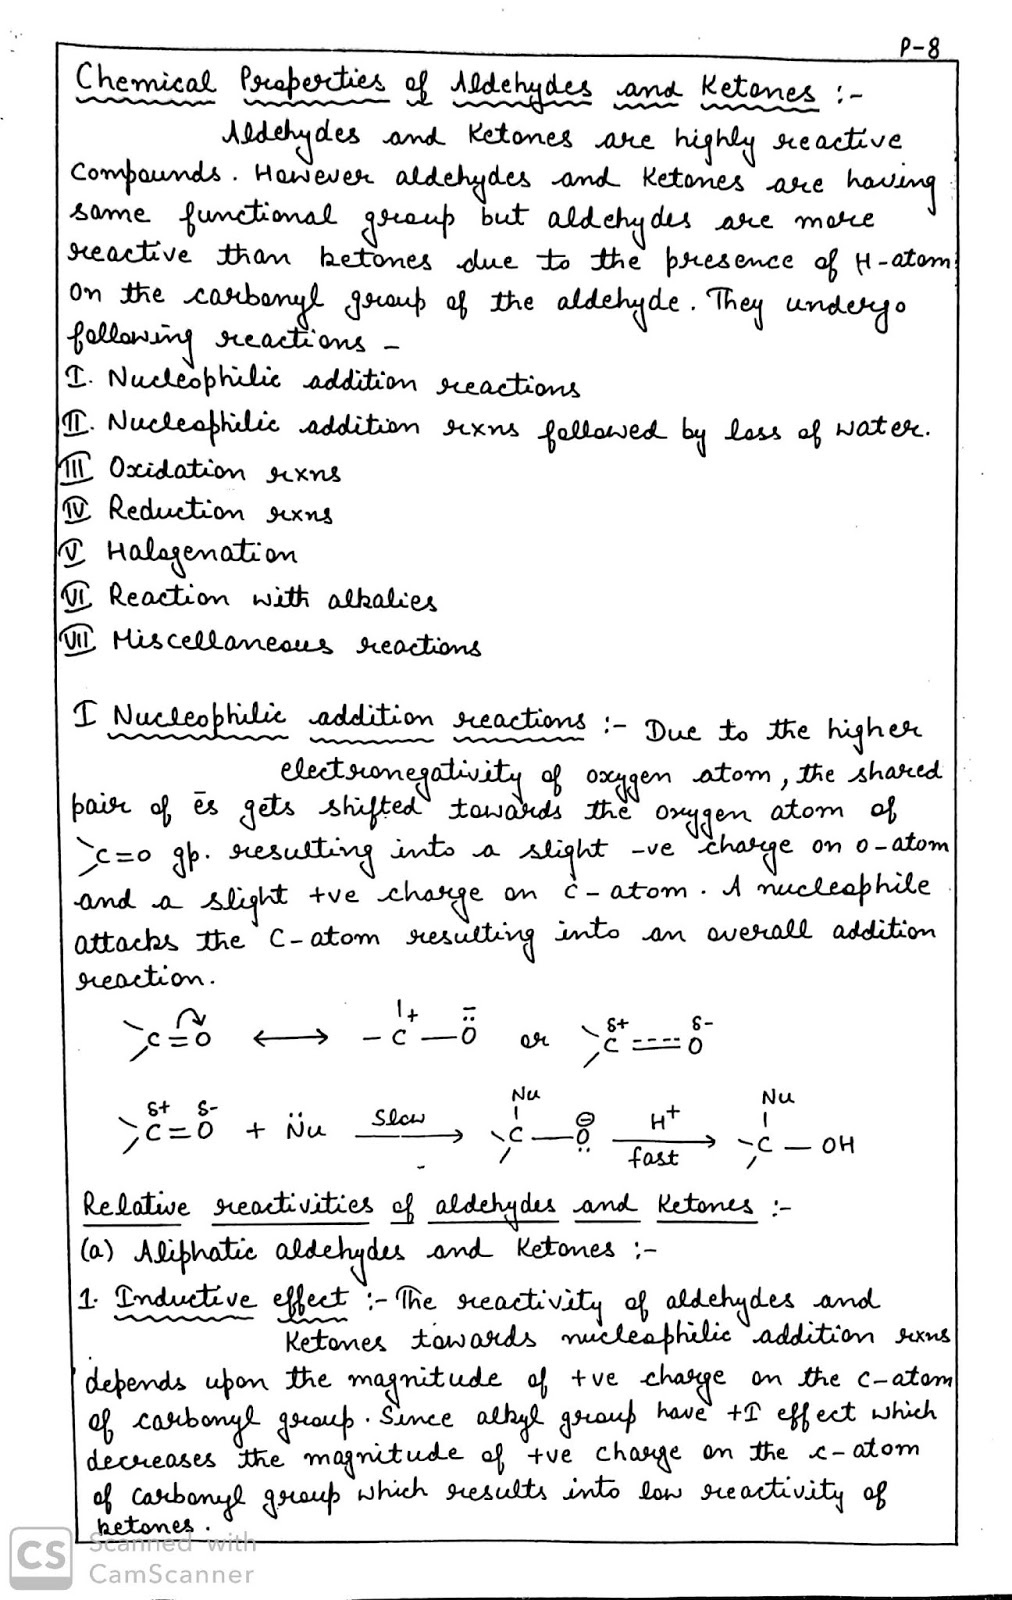 P-8
Chemical Properties of Aldehydes and Ketones :-
Aldehydes and Ketones are highly reactive
compounds. However aldehydes and Ketones are having
same functional group but aldehydes are more
reactive than ketones due to the presence of H-atom
on the carbonyl group of the aldehyde. They undergo
following reactions -
I. Nucleophilic addition reactions
II. Nucleophilic addition rxns followed by loss of water.
III Oxidation rxns
IV Reduction rxns
V Halogenation
VI Reaction with alkalies
VII Miscellaneous reactions
I Nucleophilic addition reactions :- Due to the higher
electronegativity of oxygen atom, the shared
pair of ēs gets shifted towards the oxygen atom of
>C=O gp. resulting into a slight -ve charge on O-atom
and a slight +ve charge on C-atom. A nucleophile
attacks the C-atom resulting into an overall addition
reaction.
>C=O ⟷ -C⁺-Ö⁻ or >Cδ+ ==== Oδ-
>Cδ+=Oδ- + N̈u slow → Nu -C-O⊖ H⁺ fast → Nu -C-OH
Relative reactivities of aldehydes and Ketones :-
(a) Aliphatic aldehydes and Ketones :-
1. Inductive effect :- The reactivity of aldehydes and
Ketones towards nucleophilic addition rxns
depends upon the magnitude of +ve charge on the C-atom
of carbonyl group. Since alkyl group have +I effect which
decreases the magnitude of +ve charge on the c-atom
of carbonyl group which results into low reactivity of
ketones.
CS Scanned with
CamScanner